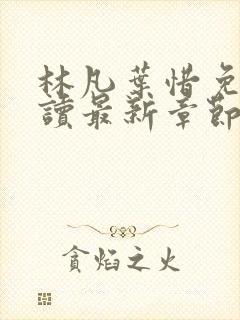 林凡葉惜免
讀最新章節
貪焰之火